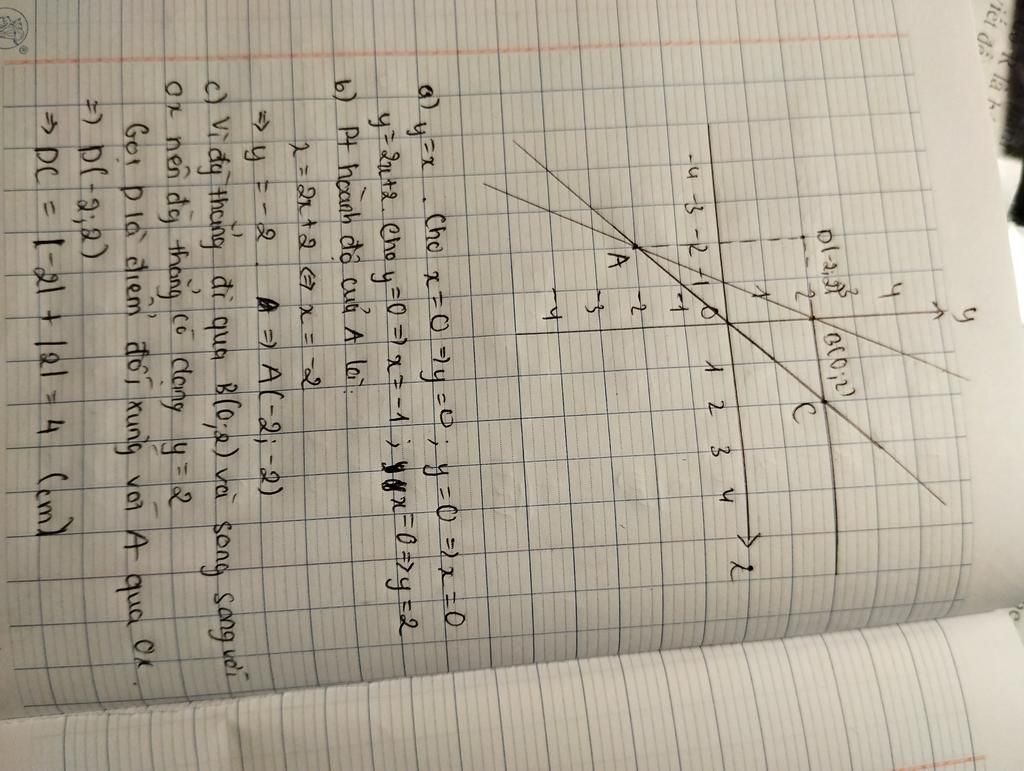 y
4
3
D(-2;2)
2
B(0;2)
C
1
-4 -3 -2 -1 0 1 2 3 4 x
-1
-2
A
-3
-4
a) y=x. Cho x=0 ⇒ y=0; y=0 ⇒ x=0
y=2x+2. Cho y=0 ⇒ x=-1; x=0 ⇒ y=2
b) Pt hoành độ của A là:
x=2x+2 ⇔ x=-2
⇒ y=-2. ⇒ A(-2;-2)
c) Vì đg thẳng đi qua B(0;2) và song song với
Ox nên đg thẳng có dạng y=2
Gọi D là điểm đối xứng với A qua Ox.
⇒ D(-2;2)
⇒ DC = |-2| + |2| = 4 (cm)